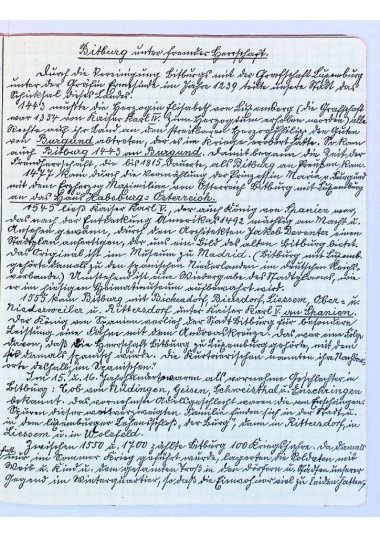 Bitburg unter fremder Herrschaft.
Durch die Vereinigung Bitburgs mit der Grafschaft Luxemburg
unter der Gräfin Ermesinde im Jahre 1239 teilte unsere Stadt das
Schicksal dieses Landes.
1443 mußte die Herzogin Elisabeth von Luxemburg (die Grafschaft
war 1354 von Kaiser Karl IV. zum Herzogtum erhoben worden) alle
Rechte auf ihr Land an den Herzog Philipp den Guten
von Burgund abtreten, der es im Kriege erobert hatte. So kam
auch Bitburg 1443 an Burgund, damit begann die Zeit der
Fremdherrschaft, die bis 1815 dauerte, als Bitburg an Preußen kam.
1477 kam durch die Vermählung der Prinzessin Maria v. Burgund
mit dem Erzherzog Maximilian von Österreich Bitburg mit Luxemburg
an das Haus Habsburg-Österreich.
1545 ließ Kaiser Karl V., der auch König von Spanien war,
das nach der Entdeckung Amerikas 1492 mächtig an Macht u.
Ansehen gewann, durch den Architekten Jakob Deventer einen
Stadtplan anfertigen, der uns ein Bild des alten Bitburg bietet.
Das Original ist im Museum zu Madrid. (Bitburg mit Luxemb.
gehörte damals zu den spanischen Niederlanden im deutschen Reichs-
verbande.) Umstehend ist eine Wiedergabe des Stadtplanes, wie
er im hiesigen Heimatmuseum aufbewahrt wird.
1555 kam Bitburg mit Bickendorf, Biersdorf, Liessem, Ober- u.
Niederweiler u. Rittersdorf unter Kaiser Karl V. an Spanien.
Der König von Spanien verlieh der Stadt Bitburg für besondere
Leistung eine Fahne mit dem Andreaskreuze. Das war eine Folge
davon, daß die Herrschaft Bitburg zu Luxemburg gehörte, mit dem
sie damals spanisch wurde. Die Kurtrierischen nannten ihre Nachbar-
orte deshalb im Spanischen.
Im 15. u. 16. Jahrhundert waren als vornehme Geschlechter in
Bitburg: Cob von Nüdingen, Geisen, Schweisthal u. Enscheringen
bekannt. Das vornehmste Adelsgeschlecht waren die von Enscheringen.
Spuren dieser weitverzweigten Familie finden sich in der Stadt u.
in dem luxemburger Lehenschloß, der „Burg“, dann in Rittersdorf, in
Liessem u. in Wolsfeld.
Zwischen 1550 u. 1700 zählte Bitburg 100 Kriegsjahre. Da damals
nur im Sommer Krieg geführt wurde, lagerten die Soldaten mit
Weib u. Kind u. dem gesamten Troß in den Dörfern u. Städten unserer
Gegend im Winterquartier, so daß die Einwohner viel zu leiden hatten,